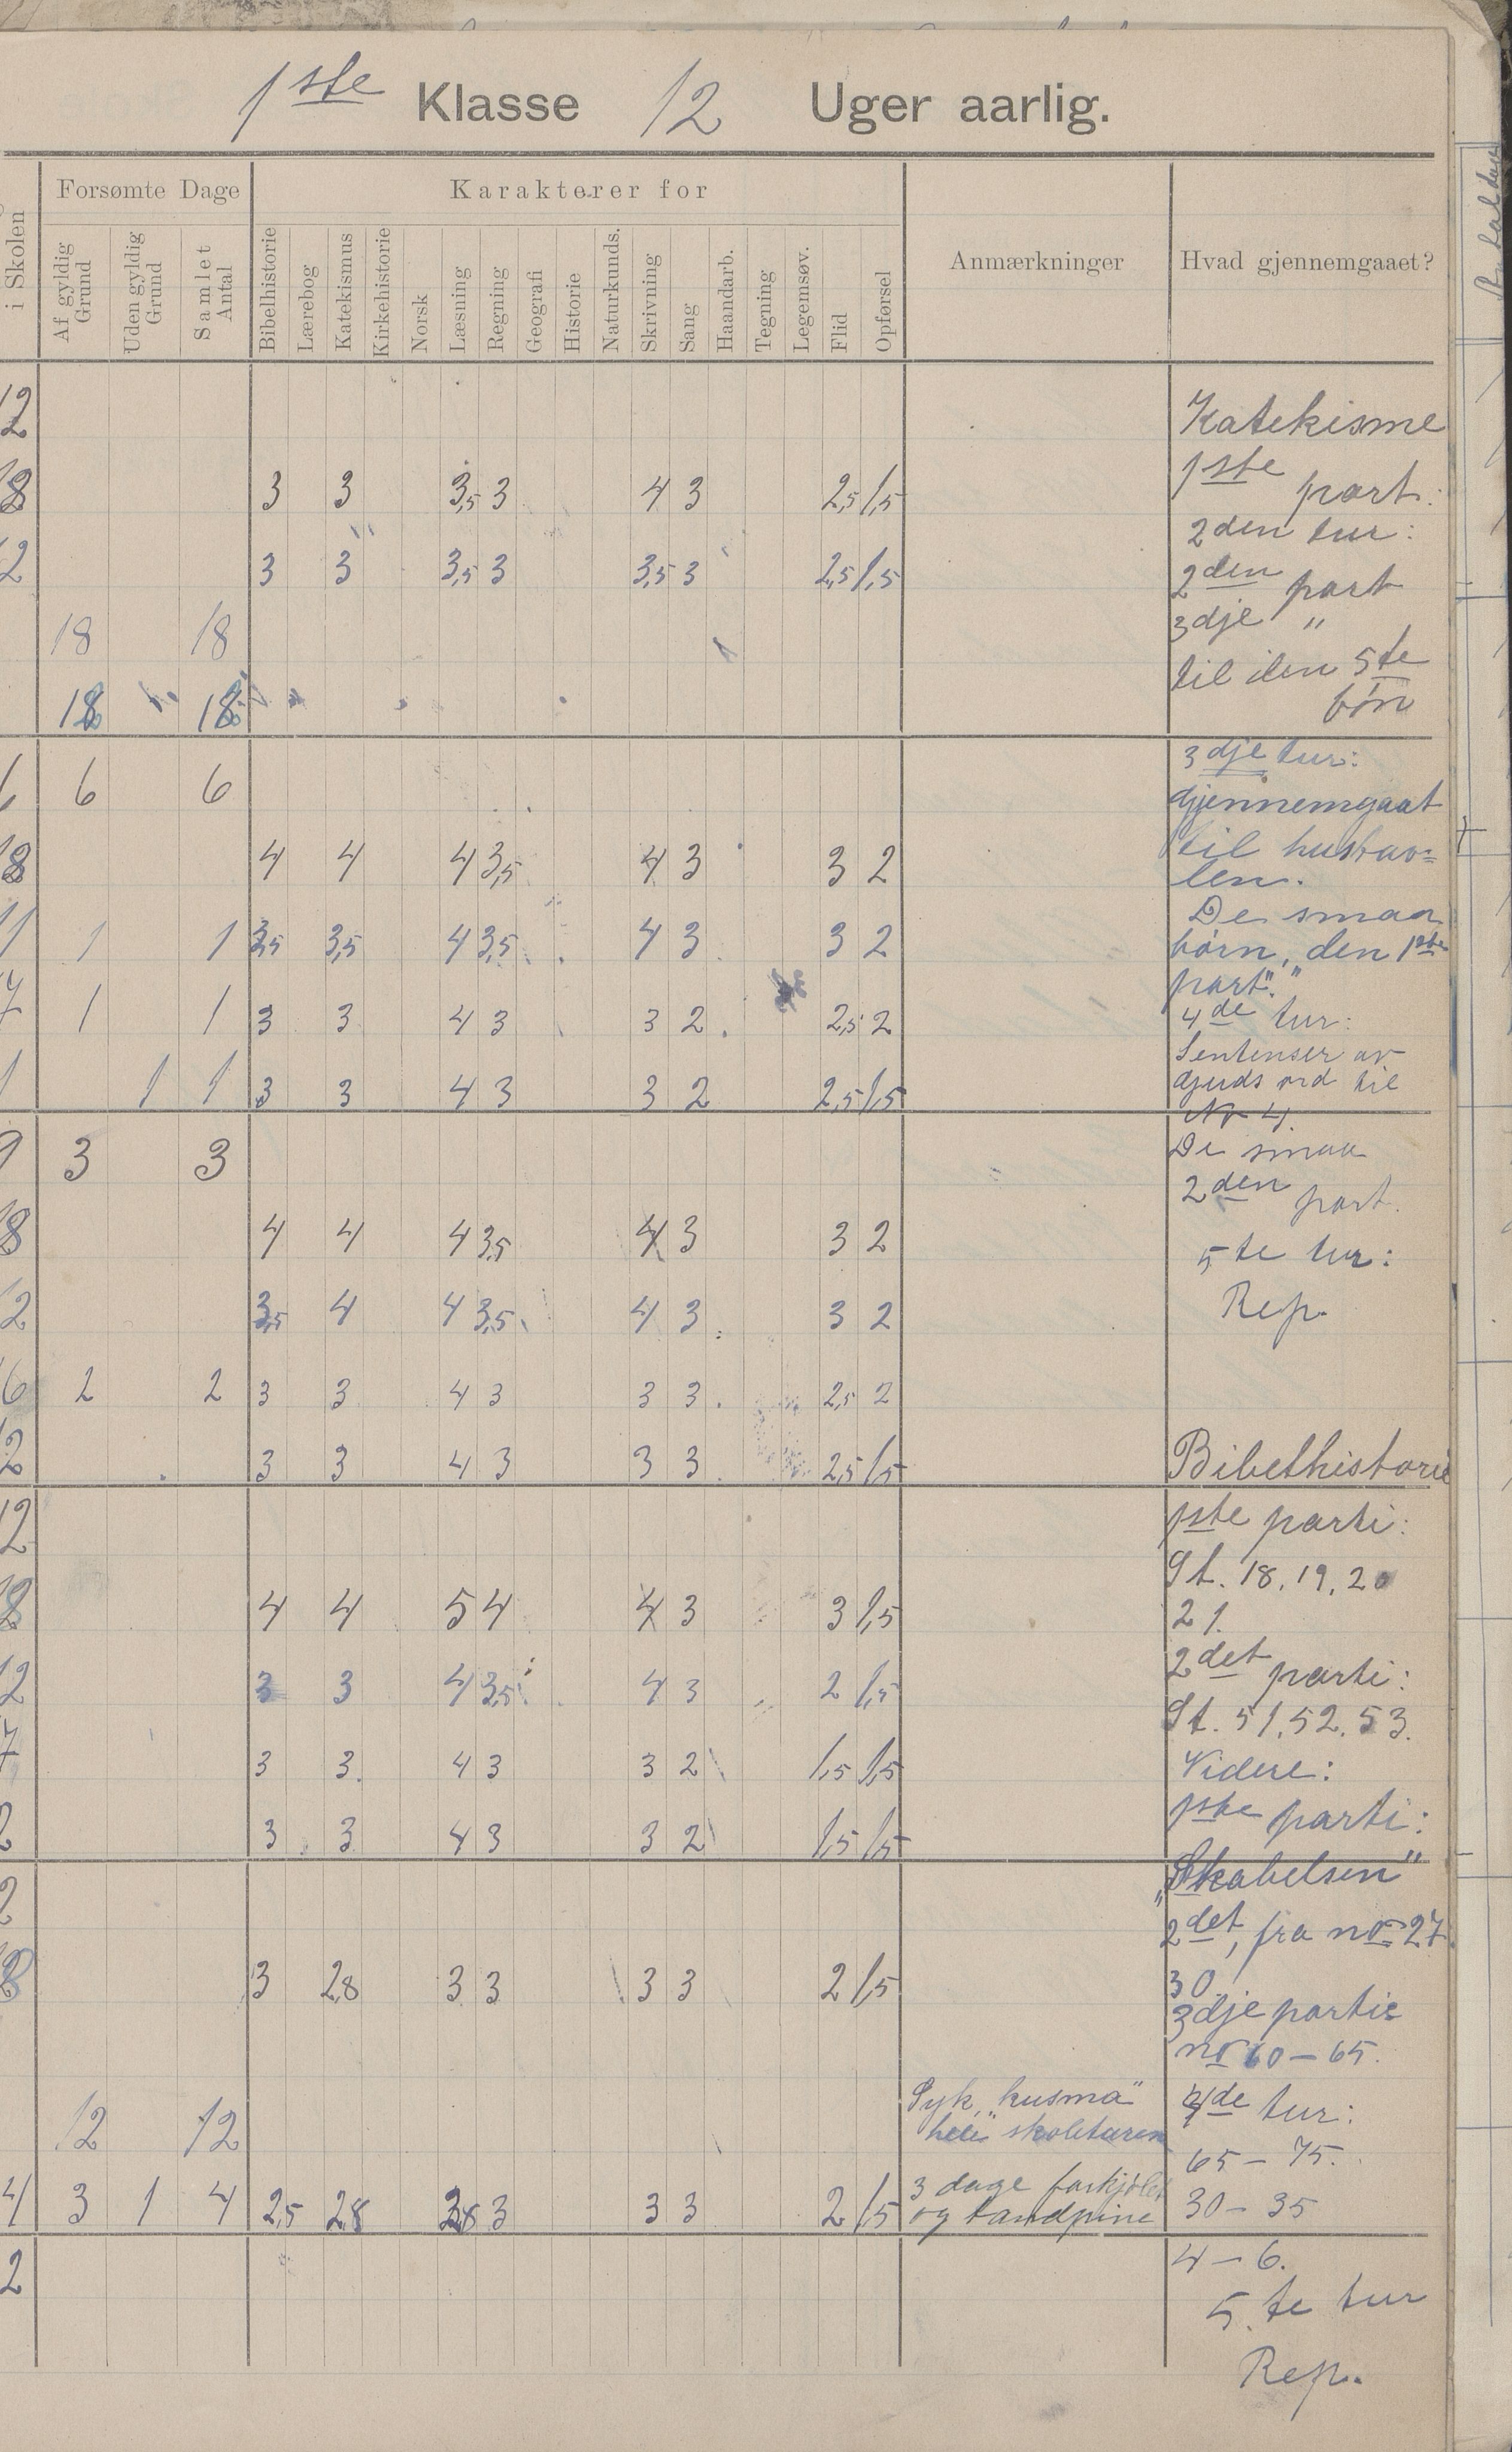 1ste Klasse 12 Uger aarlig.
i Skolen
Forsømte Dage
Karakterer for
Anmærkninger
Hvad gjennemgaaet?
Af gyldig Grund
Uden gyldig Grund
Samlet Antal
Bibelhistorie
Lærebog
Katekismus
Kirkehistorie
Norsk
Læsning
Regning
Geografi
Historie
Naturkunds.
Skrivning
Sang
Haandarb.
Tegning
Legemsøv.
Flid
Opførsel
12
18 3 3 3,5 3 4 3 2,5 1,5
12 3 3 3,5 3 3,5 3 2,5 1,5
18 18
18 18
6 6
18 4 4 4 3,5 4 3 3 2
11 1 1 3,5 3,5 4 3,5 4 3 3 2
7 1 1 3 3 4 3 3 2 2,5 2
1 1 1 3 3 4 3 3 2 2,5 1,5
9 3 3
18 4 4 4 3,5 4 3 3 2
12 3,5 4 4 3,5 4 3 3 2
6 2 2 3 3 4 3 3 3 2,5 2
2 3 3 4 3 3 3 2,5 1,5
12
18 4 4 5 4 4 3 3 1,5
12 3 3 4 3,5 4 3 2 1,5
7 3 3 4 3 3 2 1,5 1,5
2 3 3 4 3 3 2 1,5 1,5
2
18 3 2,8 3 3 3 3 2 1,5
12 12
4 3 1 4 2,5 2,8 2,8 3 3 3 2 1,5
2
Syk, "kusma"
hele skoleturen
3 dage forkjølet
og tandpine
Katekisme
1ste part:
2den tur:
2den part
3dje "
til den 5te
bøn
3dje tur:
Gjennemgaat
til hustav=
len.
De smaa
børn, den 1ste
part".
4de tur:
Sentenser av
Guds ord til
No 4.
De smaa
2den part.
5te tur:
Rep.
Bibelhistorie
1ste parti:
St. 18, 19, 20
21.
2det parti:
St. 51, 52, 53.
Videre:
1ste parti:
"Skabelsen"
2det, fra no 27
30
3dje partie
no 60 — 65.
4de tur:
65 — 75.
30 — 35
4 — 6.
5.te tur
Rep.